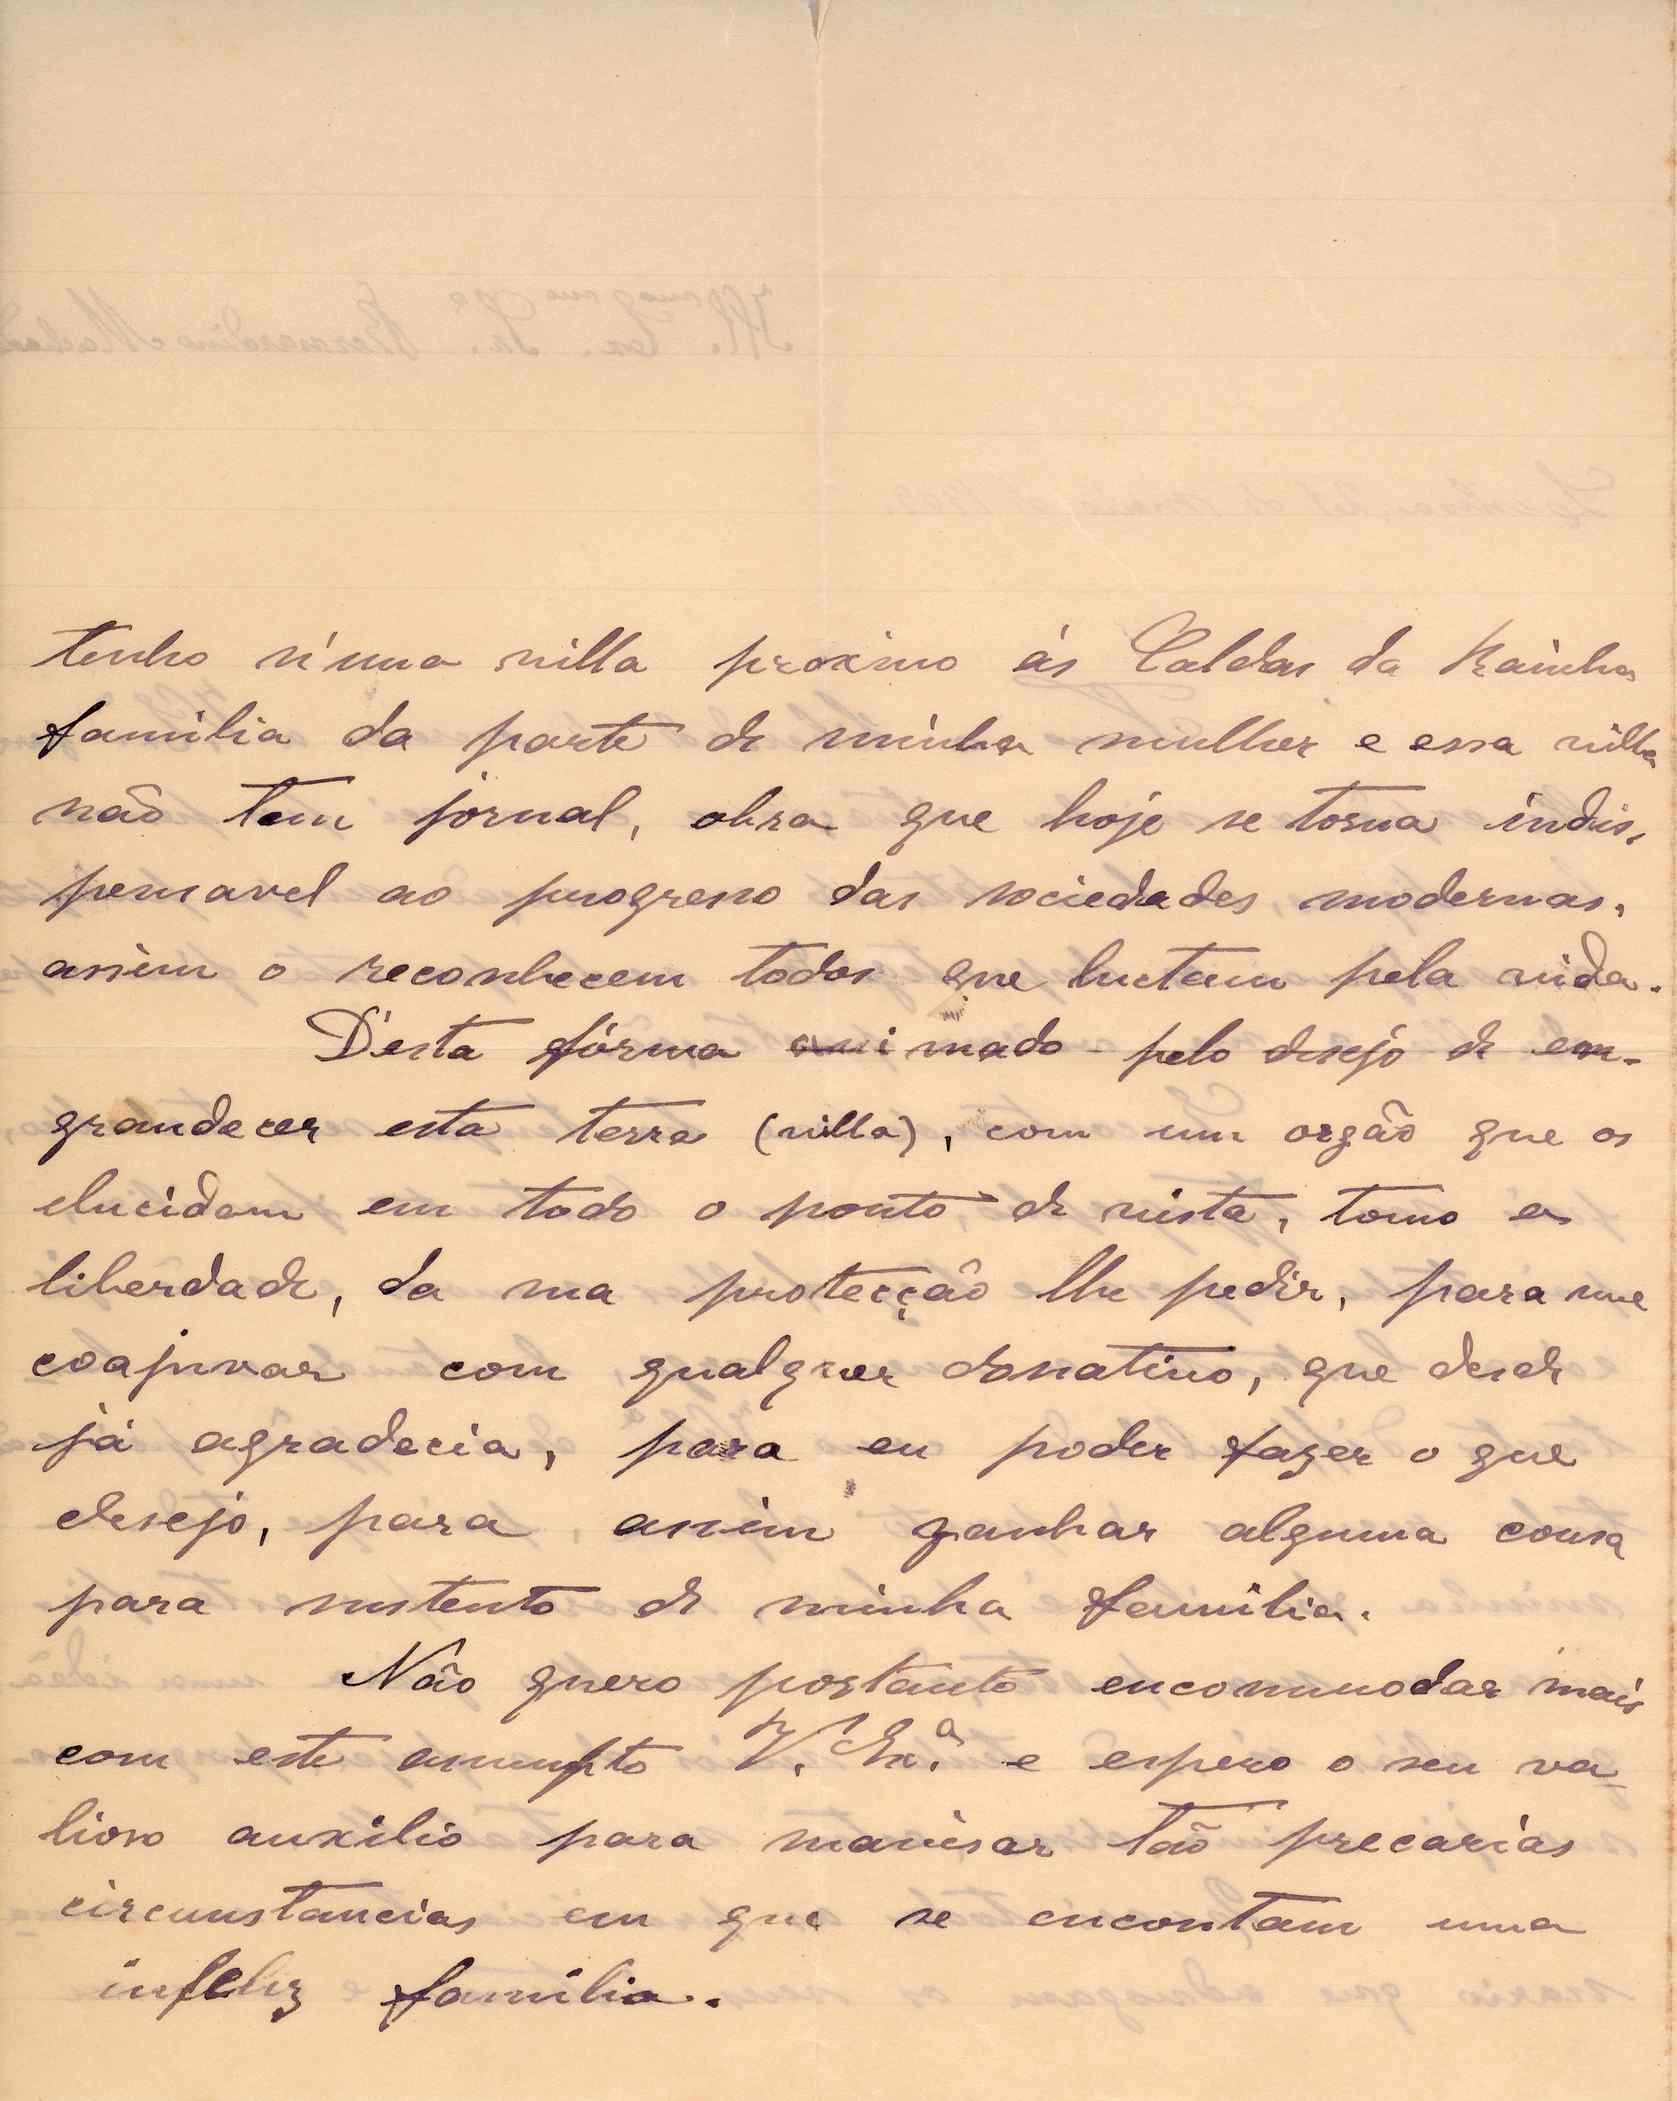 tenho n'uma villa proximo ás Caldas da Rainha
familia da parte de minha mulher e essa villa
não tem jornal, obra que hoje se torna indis-
pensavel ao progresso das sociedades modernas,
assim o reconhecem todos que luctam pela vida.
D'esta fórma animado pelo desejo de em-
grandecer esta terra (villa), com um orgão que os
elucidam em todo o ponto de vista, tomo a
liberdade, da sua protecção lhe pedir, para me
coajuvar com qualquer donativo, que desde
já agradecia, para eu poder fazer o que
desejo, para assim ganhar alguma cousa
para sustento de minha familia.
Não quero portanto encommodar mais
com este assumpto V. Ex.ª e espero o seu va-
lioso auxilio para suavisar tão precarias
circunstancias em que se encontam uma
infeliz familia.